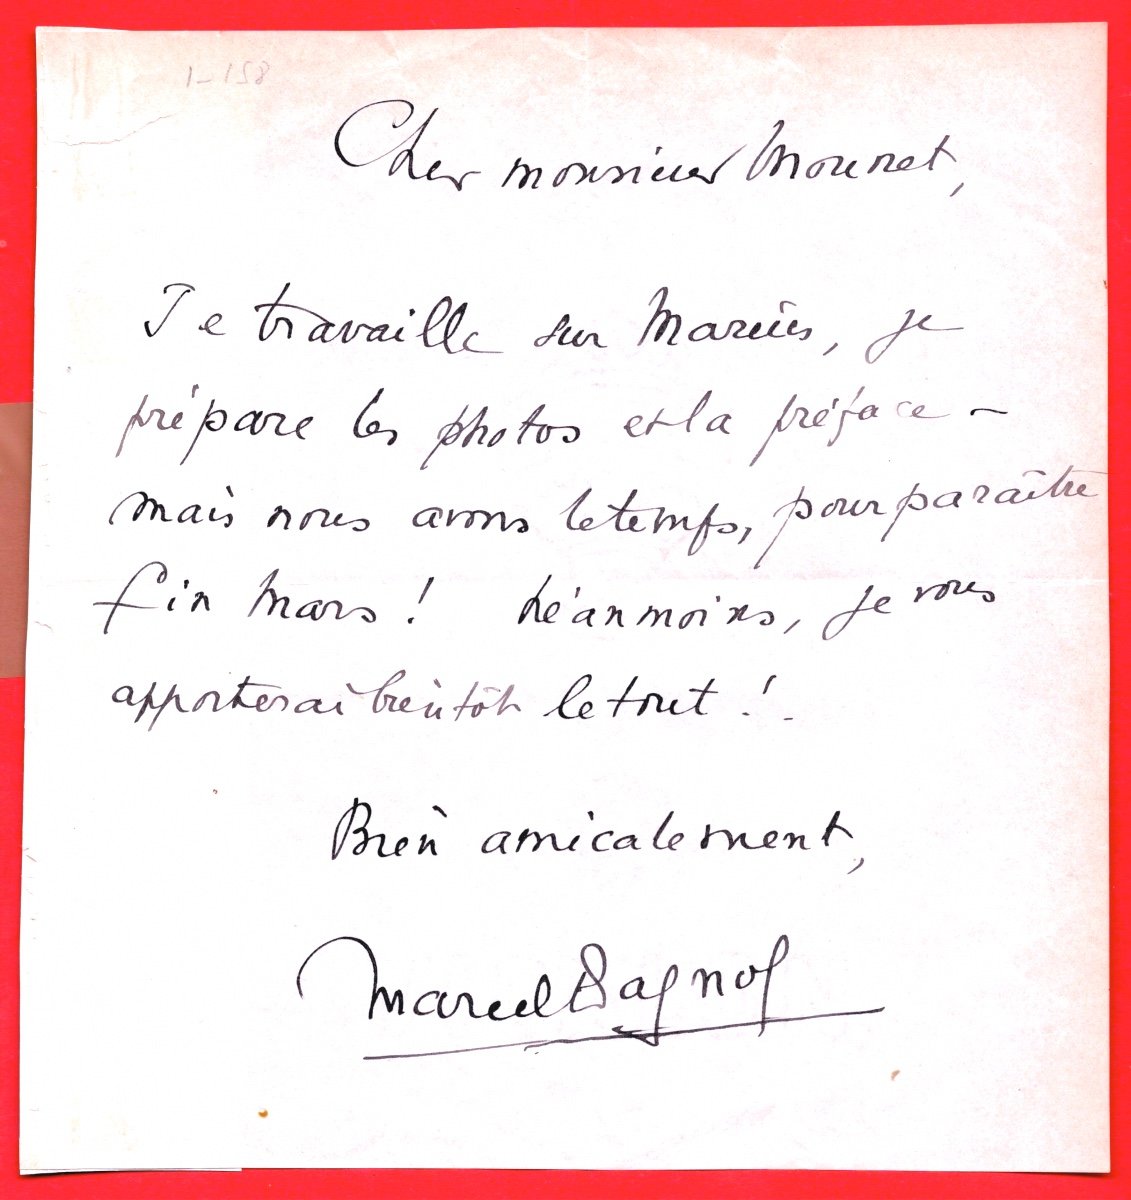 1-158
Cher monsieur Mounet,
Je travaille sur Marius, je
prépare les photos et la préface —
mais nous avons le temps, pour paraître
fin Mars ! Néanmoins, je vous
apporterai bientôt le tout !.
Bien amicalement,
Marcel Pagnol